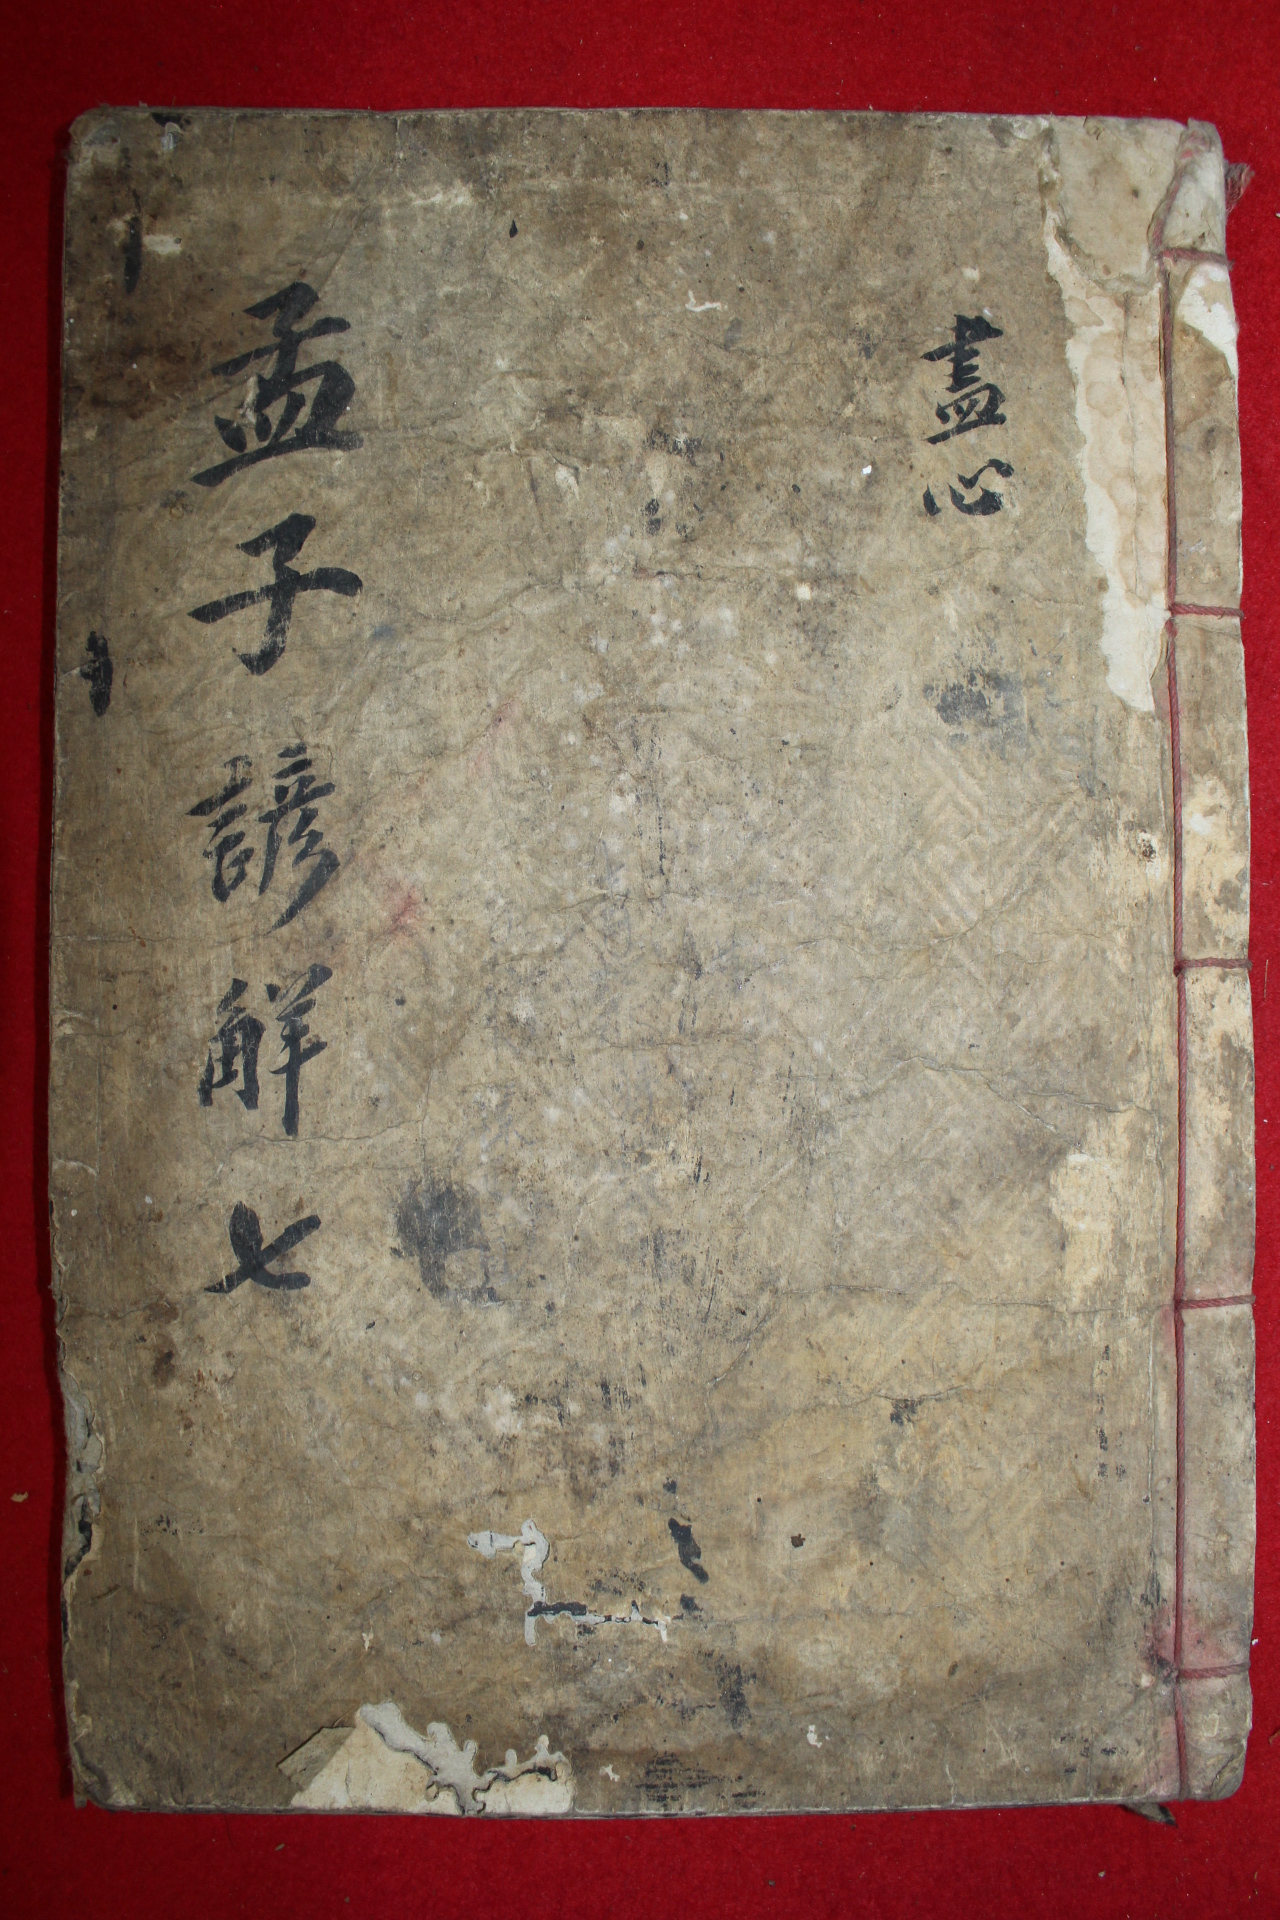 盡心
孟子諺解 七